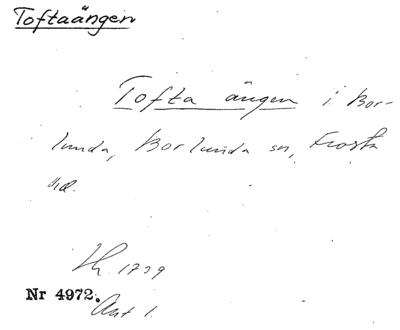 Toftaängen
Tofta ängen i Bor-
lunda, Borlunda sn, Frosta
hd.
Lh. 1739
Nr 4972.
Ant 1.